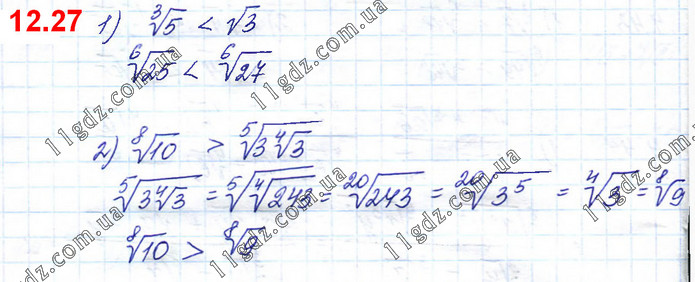 12.27
1) ∛5 < √3
⁶√25 < ⁶√27
2) ⁸√10 > ⁵√(3⁴√3)
⁵√(3⁴√3) = ⁵√(⁴√243) = ²⁰√243 = ²⁰√(3⁵) = ⁴√3 = ⁸√9
⁸√10 > ⁸√9
11gdz.com.ua
11gdz.com.ua
11gdz.com.ua
11gdz.com.ua
11gdz.com.ua